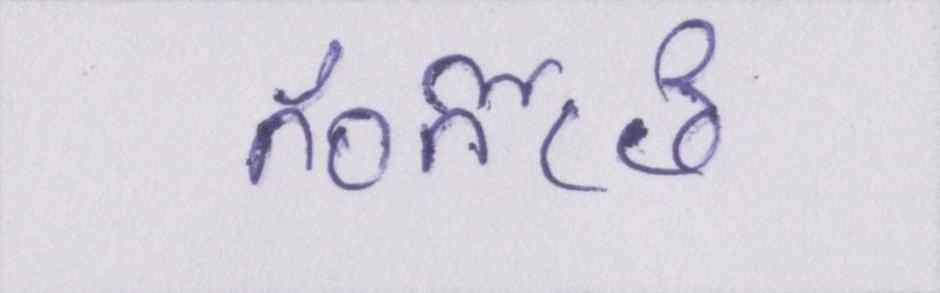 గంగోత్రి